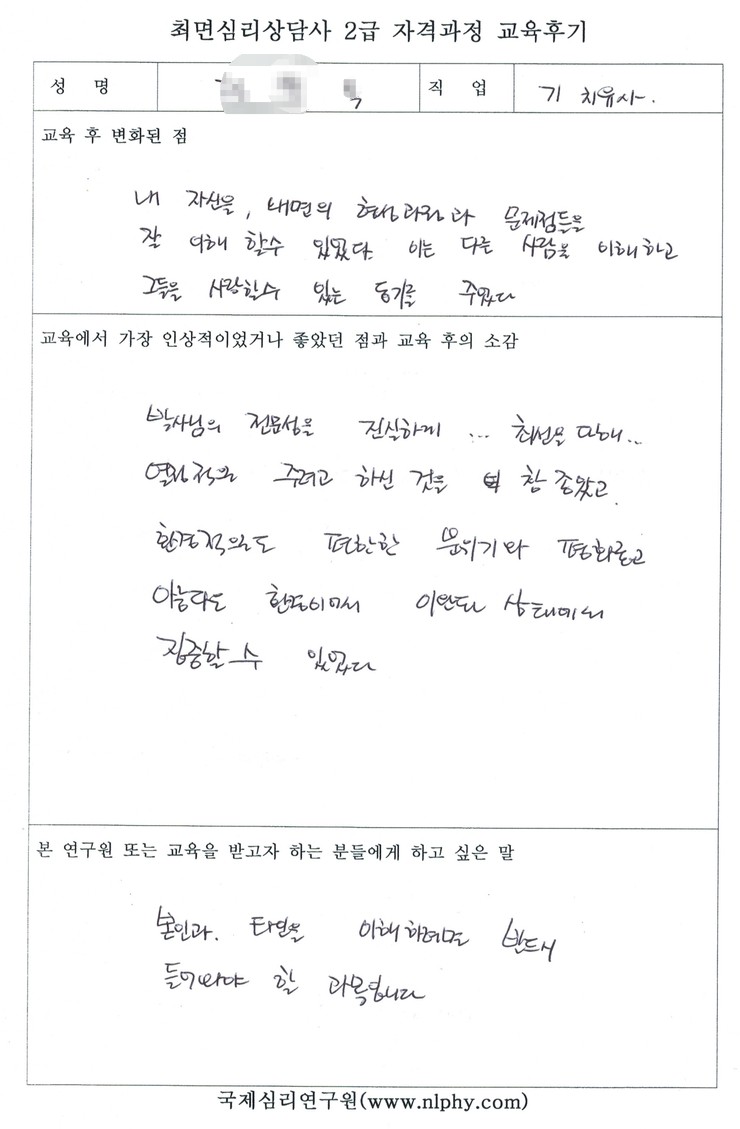 최면심리상담사 2급 자격과정 교육후기
성 명
직 업
기 치유사.
교육 후 변화된 점
내 자신을, 내면의 현상과 문제점들을
잘 이해 할수 있었다. 이는 다른 사람을 이해하고
그들을 사랑할수 있는 동기를 주었다
교육에서 가장 인상적이었거나 좋았던 점과 교육 후의 소감
박사님의 전문성을 진실하게 ... 최선을 다해...
열정적으로 주려고 하신 것을 참 좋았고.
환경적으로도 편안한 분위기와 평화롭고
아늑한 환경이어서 이완된 상태에서
집중할 수 있었다
본 연구원 또는 교육을 받고자 하는 분들에게 하고 싶은 말
본인과. 타인을 이해하려면 반드시
들어봐야 할 과목입니다
국제심리연구원(www.nlphy.com)